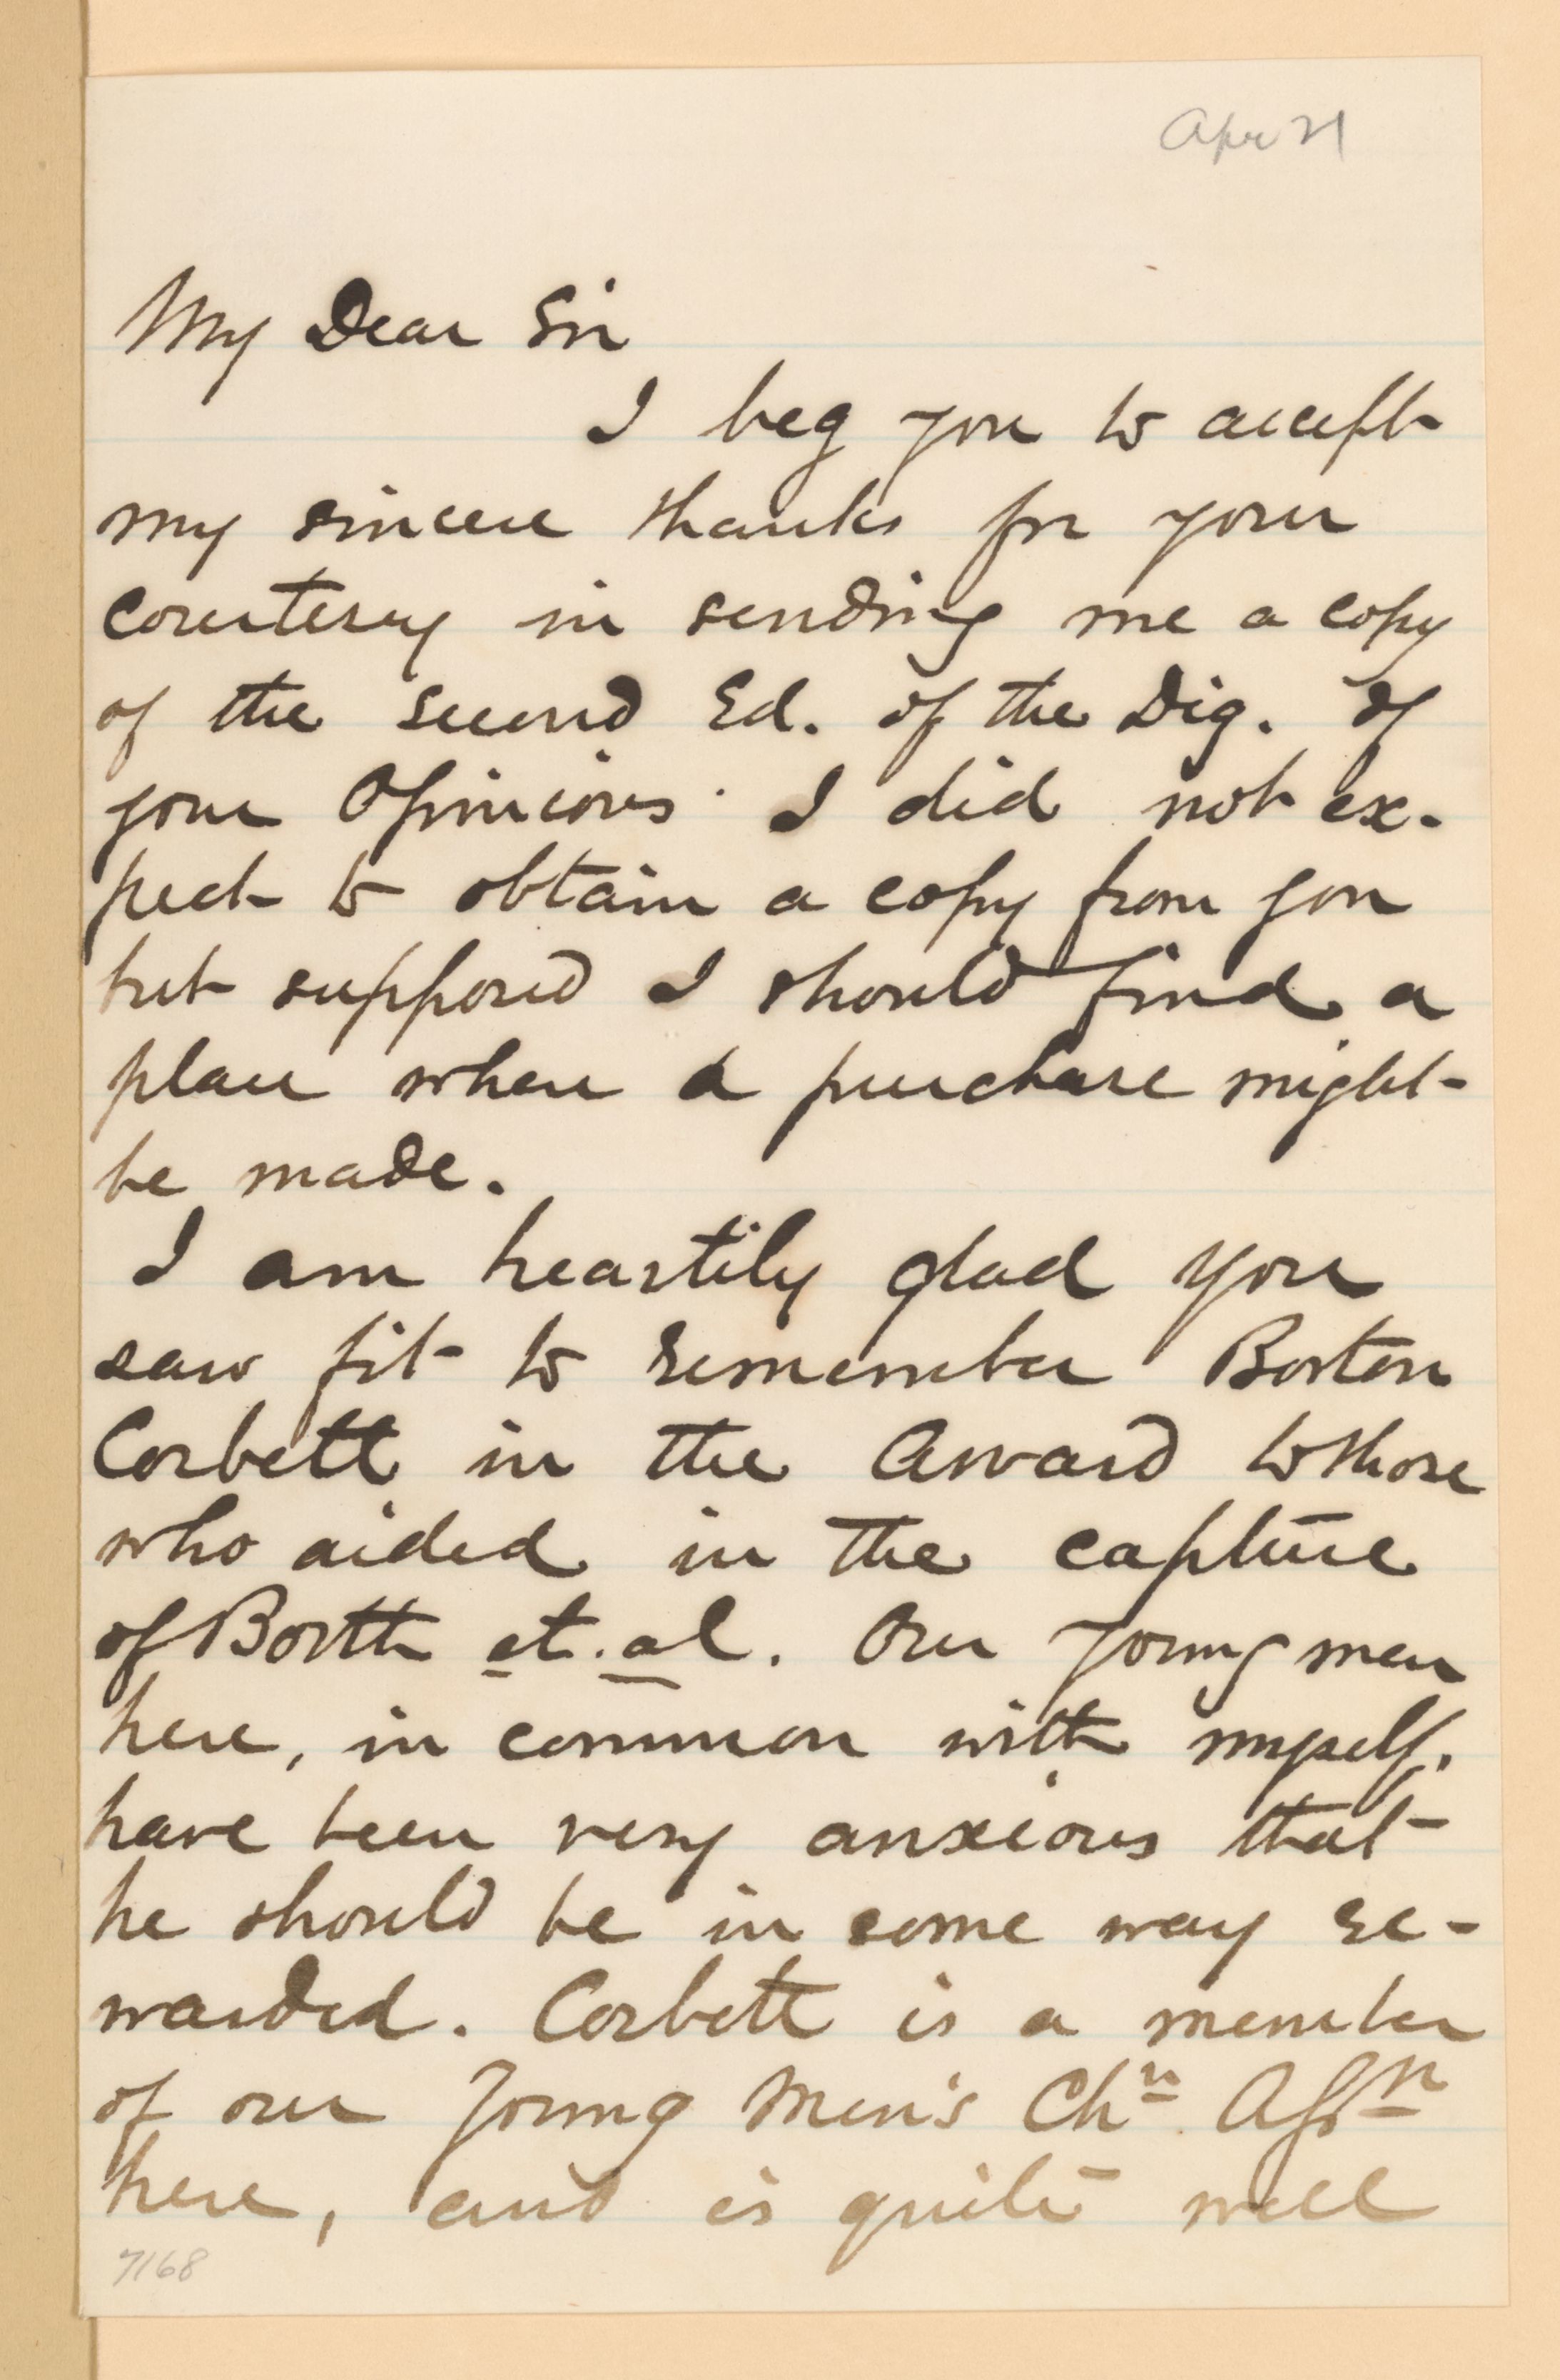 Apr 21
My Dear Sir
I beg you to accept
my sincere thanks for your
courtesey in sending me a copy
of the second Ed. of the Dig. of
your Opinions. I did not ex-
pect to obtain a copy from you
but supposed I should find a
place where a purchase might
be made.
I am heartily glad you
saw fit to remember Boston
Corbett in the Award to those
who aided in the capture
of Booth et. al. Our young men
here, in common with myself,
have been very anxious that
he should be in some way re-
warded. Corbett is a member
of our Young Men's Chn. Assn
here, and is quite well
7168